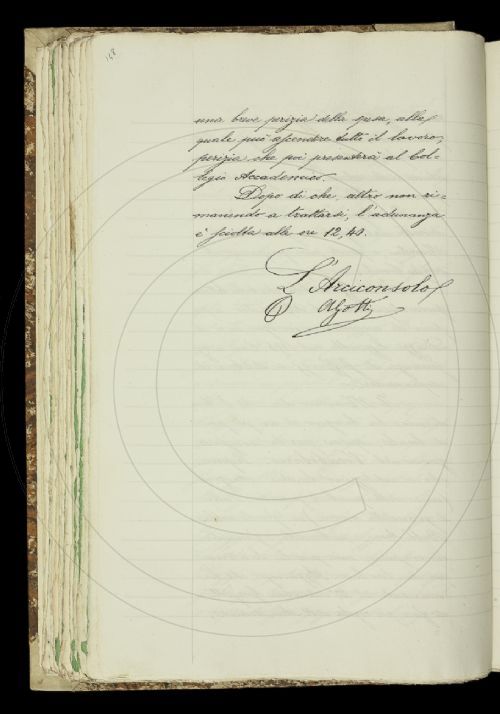 168
una breve perizia della spesa, alla
quale può ascendere tutto il lavoro,
perizia che poi presenterà al Col-
legio Accademico.
Dopo di che, altro non ri-
manendo a trattarsi, l'adunanza
è sciolta alle ore 12,40.
L'Arciconsolo